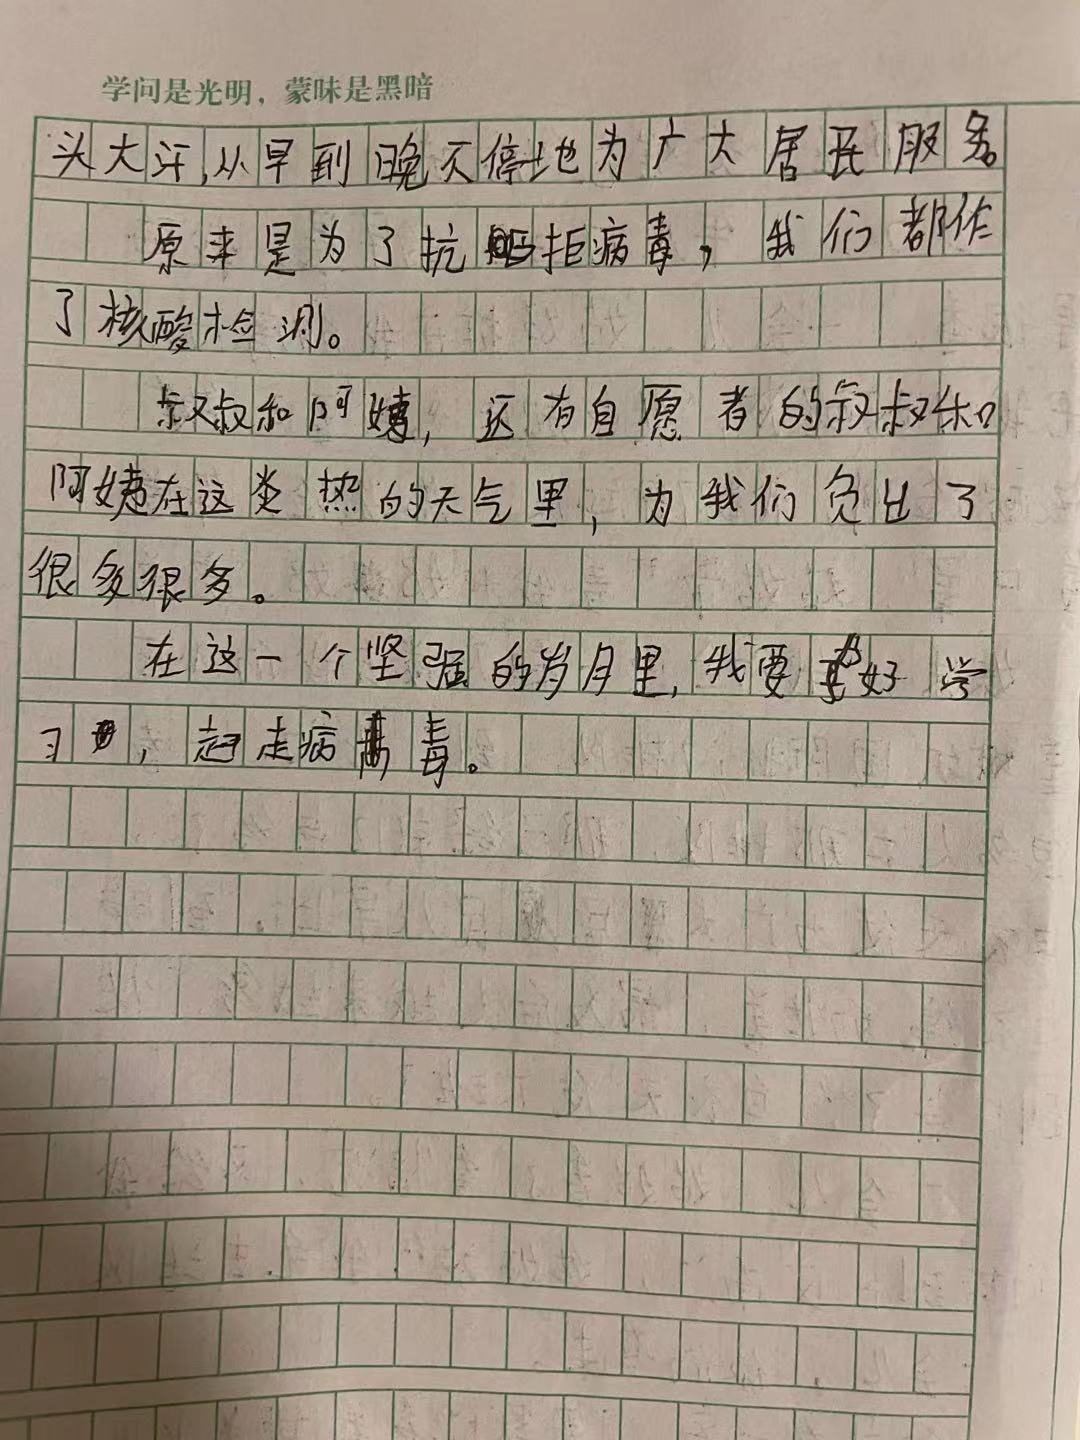 学问是光明，蒙昧是黑暗
头大汗,从早到晚不停地为广大居民服务。
原来是为了抗拒病毒，我们都作
了核酸检测。
叔叔和阿姨，还有自愿者的叔叔和
阿姨在这炎热的天气里，为我们负出了
很多很多。
在这一个坚强的岁月里，我要好学
习，赶走病毒。